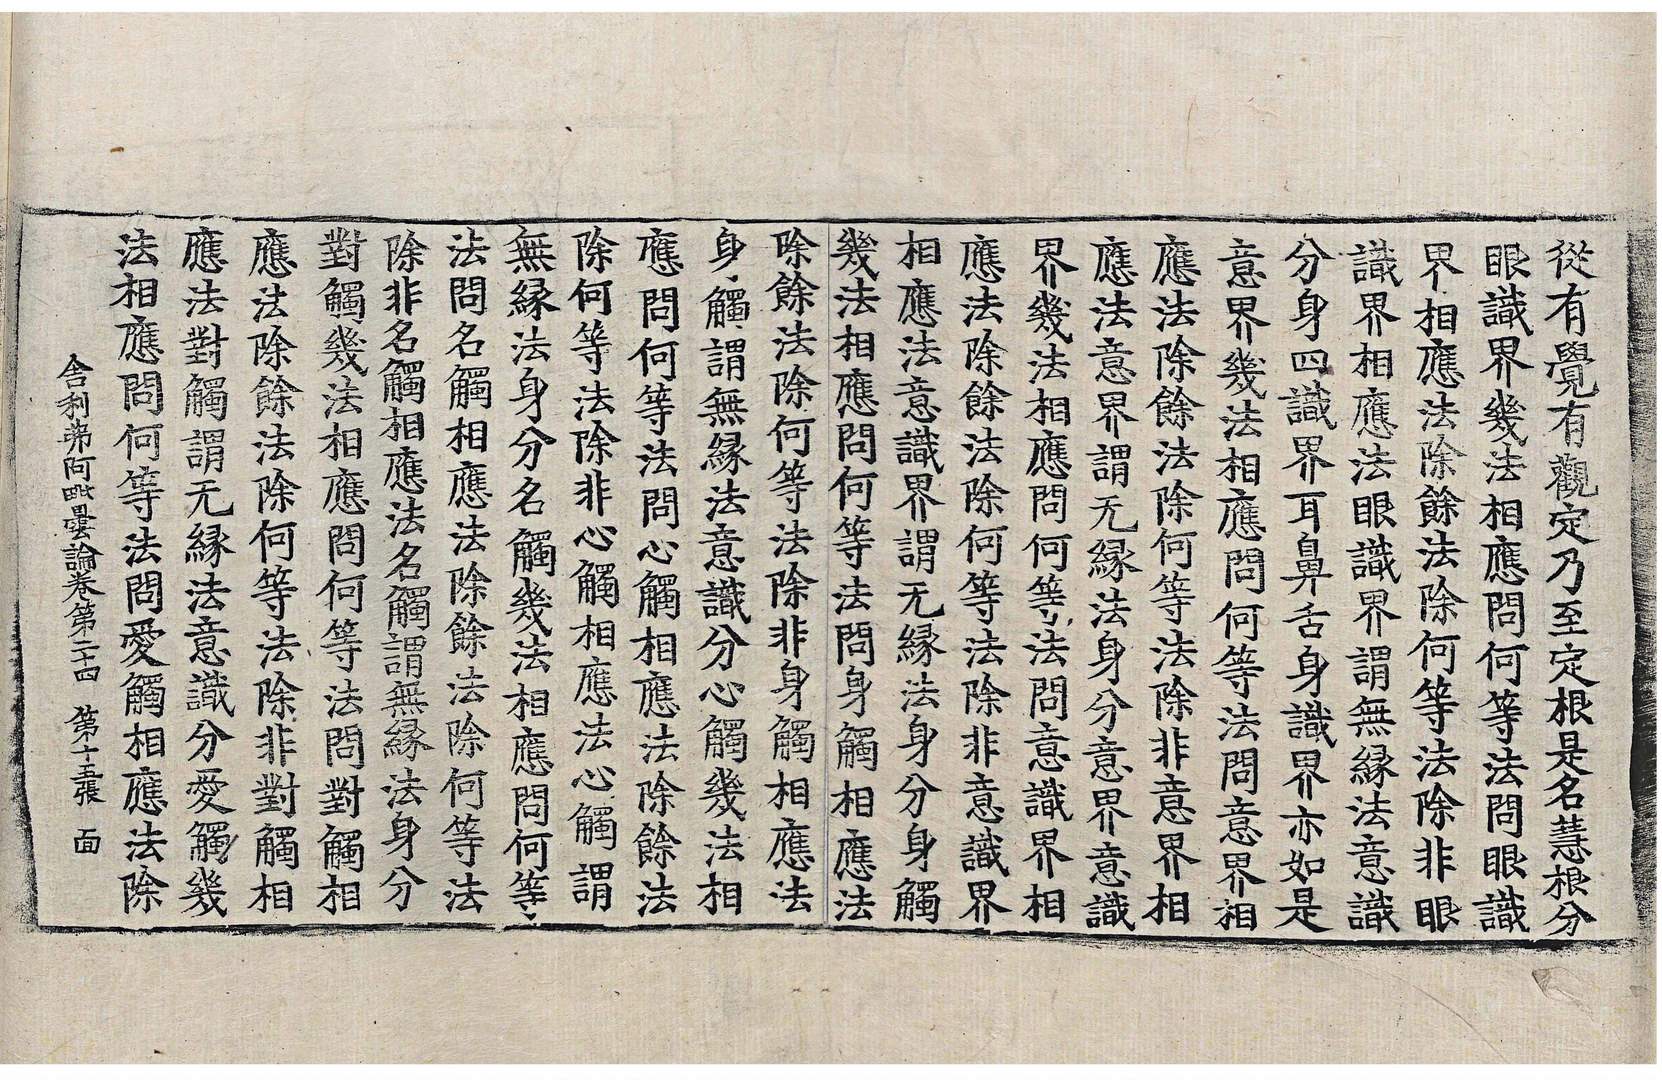 從有覺有觀定乃至定根是名慧根分
眼識界幾法相應問何等法問眼識
界相應法除餘法除何等法除非眼
識界相應法眼識界謂無緣法意識
分身四識界耳鼻舌身識界亦如是
意界幾法相應問何等法問意界相
應法除餘法除何等法除非意界相
應法意界謂无緣法身分意界意識
界幾法相應問何等法問意識界相
應法除餘法除何等法除非意識界
相應法意識界謂无緣法身分身觸
幾法相應問何等法問身觸相應法
除餘法除何等法除非身觸相應法
身觸謂無緣法意識分心觸幾法相
應問何等法問心觸相應法除餘法
除何等法除非心觸相應法心觸謂
無緣法身分名觸幾法相應問何等
法問名觸相應法除餘法除何等法
除非名觸相應法名觸謂無緣法身分
對觸幾法相應問何等法問對觸相
應法除餘法除何等法除非對觸相
應法對觸謂无緣法意識分愛觸幾
法相應問何等法問愛觸相應法除
舍利弗阿毗曇論卷第二十四 第十五張 面